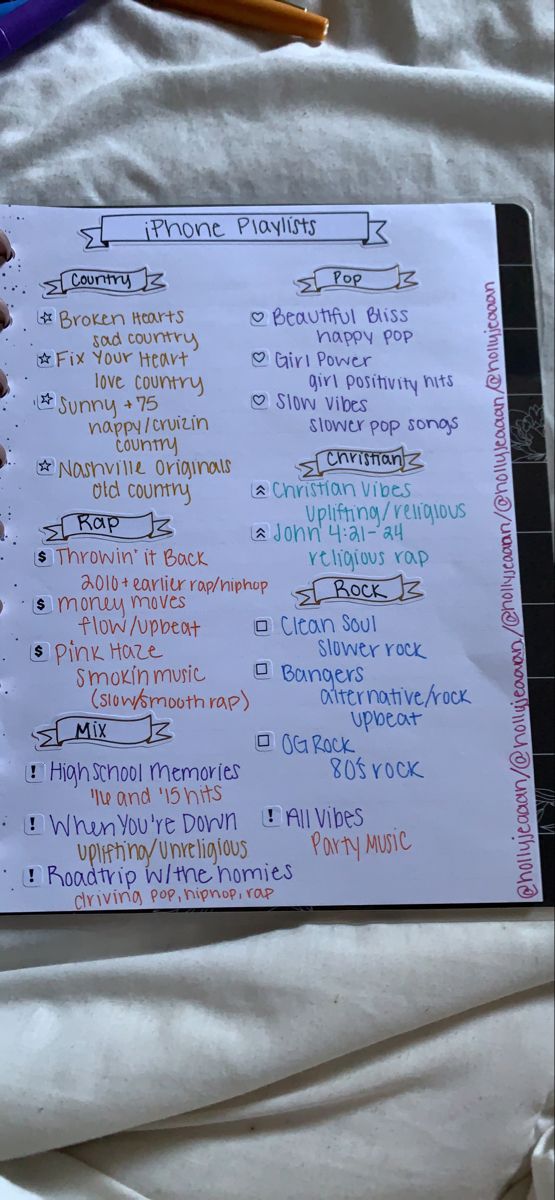 iPhone Playlists
Country
Broken Hearts
sad country
Fix Your Heart
love country
Sunny + 75
happy/cruizin
country
Nashville Originals
old country
Rap
$ Throwin' it Back
2010 + earlier rap/hiphop
$ money moves
flow/upbeat
$ Pink Haze
smokin music
(slow/smooth rap)
Mix
! High School Memories
'16 and '15 hits
! When You're Down
uplifting/unreligious
! Roadtrip w/the homies
driving pop, hiphop, rap
Pop
Beautiful Bliss
happy pop
Girl Power
girl positivity hits
Slow Vibes
slower pop songs
Christian
Christian Vibes
uplifting/religious
John 4:21-24
religious rap
Rock
Clean Soul
slower rock
Bangers
alternative/rock
upbeat
OG Rock
80's rock
! All Vibes
Party Music
@hollyjeaaan/@hollyjeaaan/@hollyjeaaan/@hollyjeaaan/@hollyjeaaan